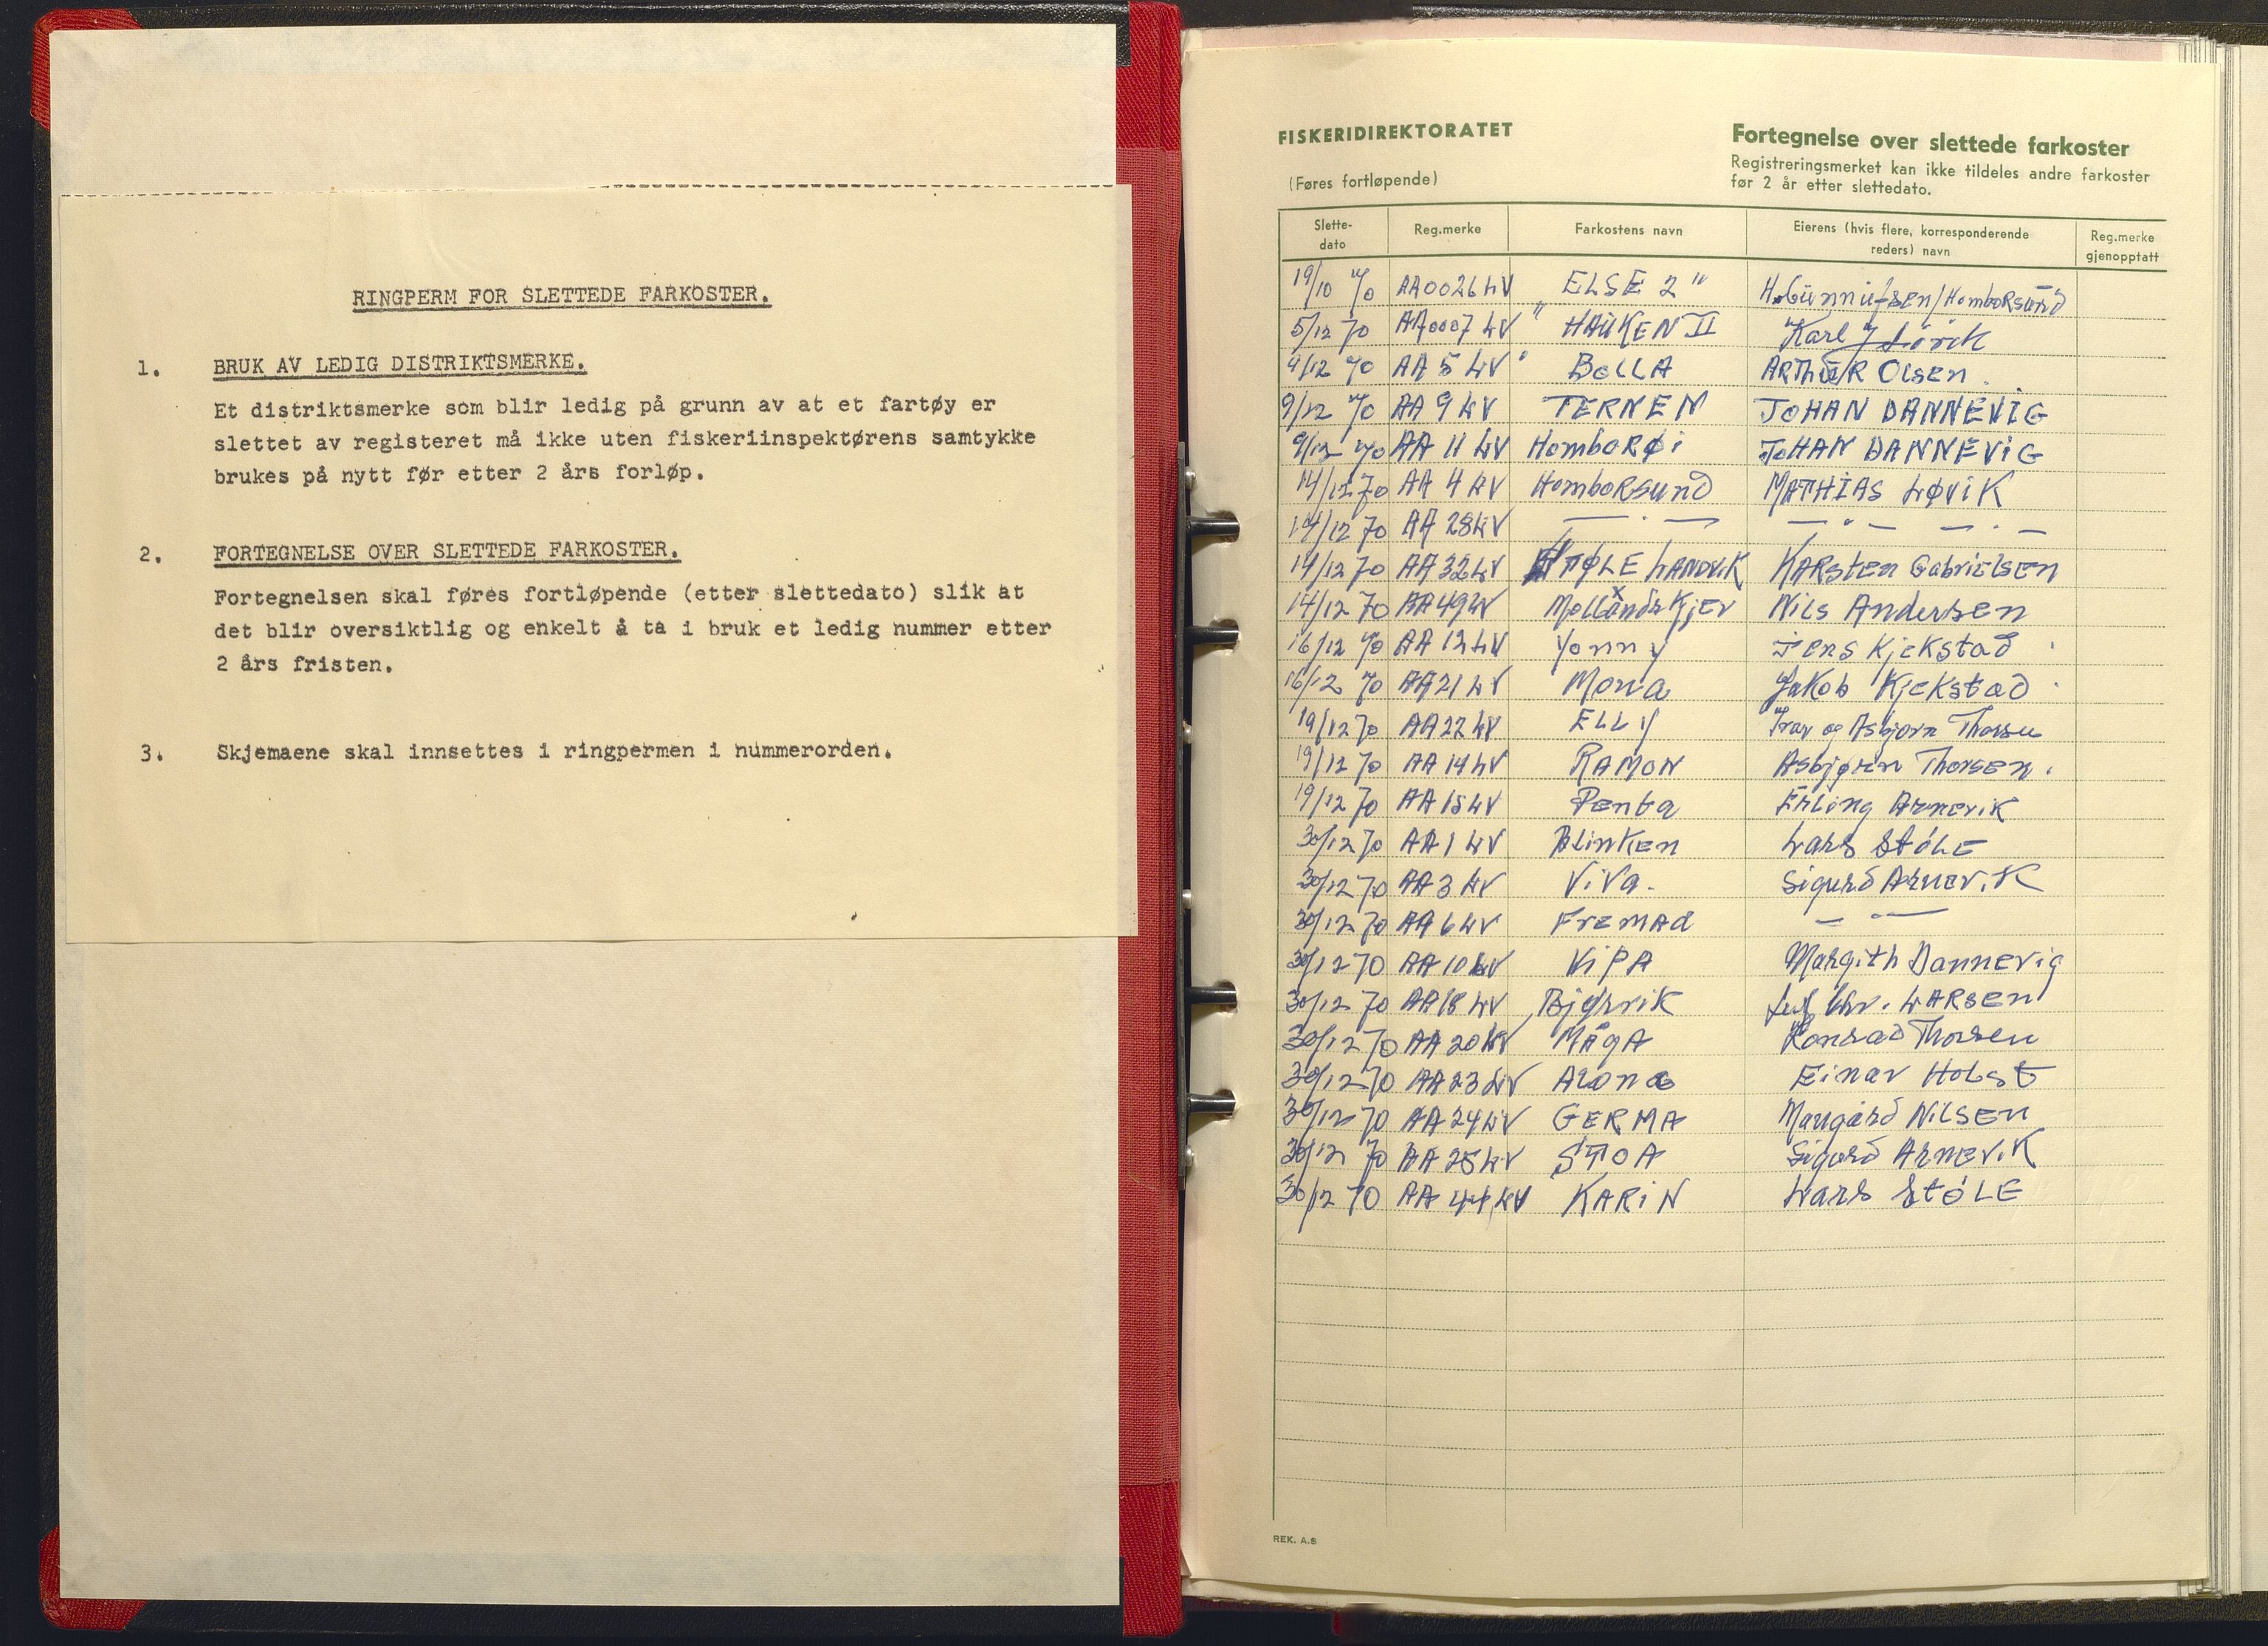 RINGPERM FOR SLETTEDE FARKOSTER.
1. BRUK AV LEDIG DISTRIKTSMERKE.
Et distriktsmerke som blir ledig på grunn av at et fartøy er
slettet av registeret må ikke uten fiskeriinspektørens samtykke
brukes på nytt før etter 2 års forløp.
2. FORTEGNELSE OVER SLETTEDE FARKOSTER.
Fortegnelsen skal føres fortløpende (etter slettedato) slik at
det blir oversiktlig og enkelt å ta i bruk et ledig nummer etter
2 års fristen.
3. Skjemaene skal innsettes i ringpermen i nummerorden.
FISKERIDIREKTORATET
(Føres fortløpende)
Fortegnelse over slettede farkoster
Registreringsmerket kan ikke tildeles andre farkoster
før 2 år etter slettedato.
Slette-
dato
Reg.merke
Farkostens navn
Eierens (hvis flere, korresponderende
reders) navn
Reg.merke
gjenopptatt
19/10 70 AA0026LV ELSE 2" H. Gunnufsen/Homborsund
5/12 70 AA0007 LV "HAUKEN II" Karl J Lövik
9/12 70 AA 5 LV BELLA ARTHUR OLSEN.
9/12 70 AA 9 LV TERNEN JOHAN DANNEVIG
9/12 70 AA 11 LV HomboRØi JOHAN DANNEVIG
14/12 70 AA 4 LV HomboRsund MATHIAS LØVIK
14/12 70 AA 28LV — · — — · — — · —
14/12 70 AA 32LV STØLE LANDVIK KARsten GabrielSEN
14/12 70 AA49LV Mollandskjer Nils Andersen
16/12 70 AA 13LV Yonny Jens Kjekstad
16/12 70 AA21 LV Mona Jakob Kjekstad
19/12 70 AA22 LV ELLY Ivar og Asbjørn Thorsen
19/12 70 AA 14LV RAMON Asbjørn Thorsen.
19/12 70 AA 15LV Penta Erling Arnevik
30/12 70 AA 1 LV Blinken Lars Støle
30/12 70 AA 3 LV ViVa. Sigurd Arnevik
30/12 70 AA 6 LV Fremad — · —
30/12 70 AA 10 LV ViPA Margith Dannevig
30/12 70 AA 18 LV Bjørvik Chr. LARSEN
30/12 70 AA 20 LV MÅgA Konrad Thorsen
30/12 70 AA 23 LV Alona Einar Holst
30/12 70 AA 24LV GERMA NILSEN
30/12 70 AA 25LV STOA Sigurd ARNEVIK
30/12 70 AA 44 LV KARIN Lars StøLE
REK. A.S